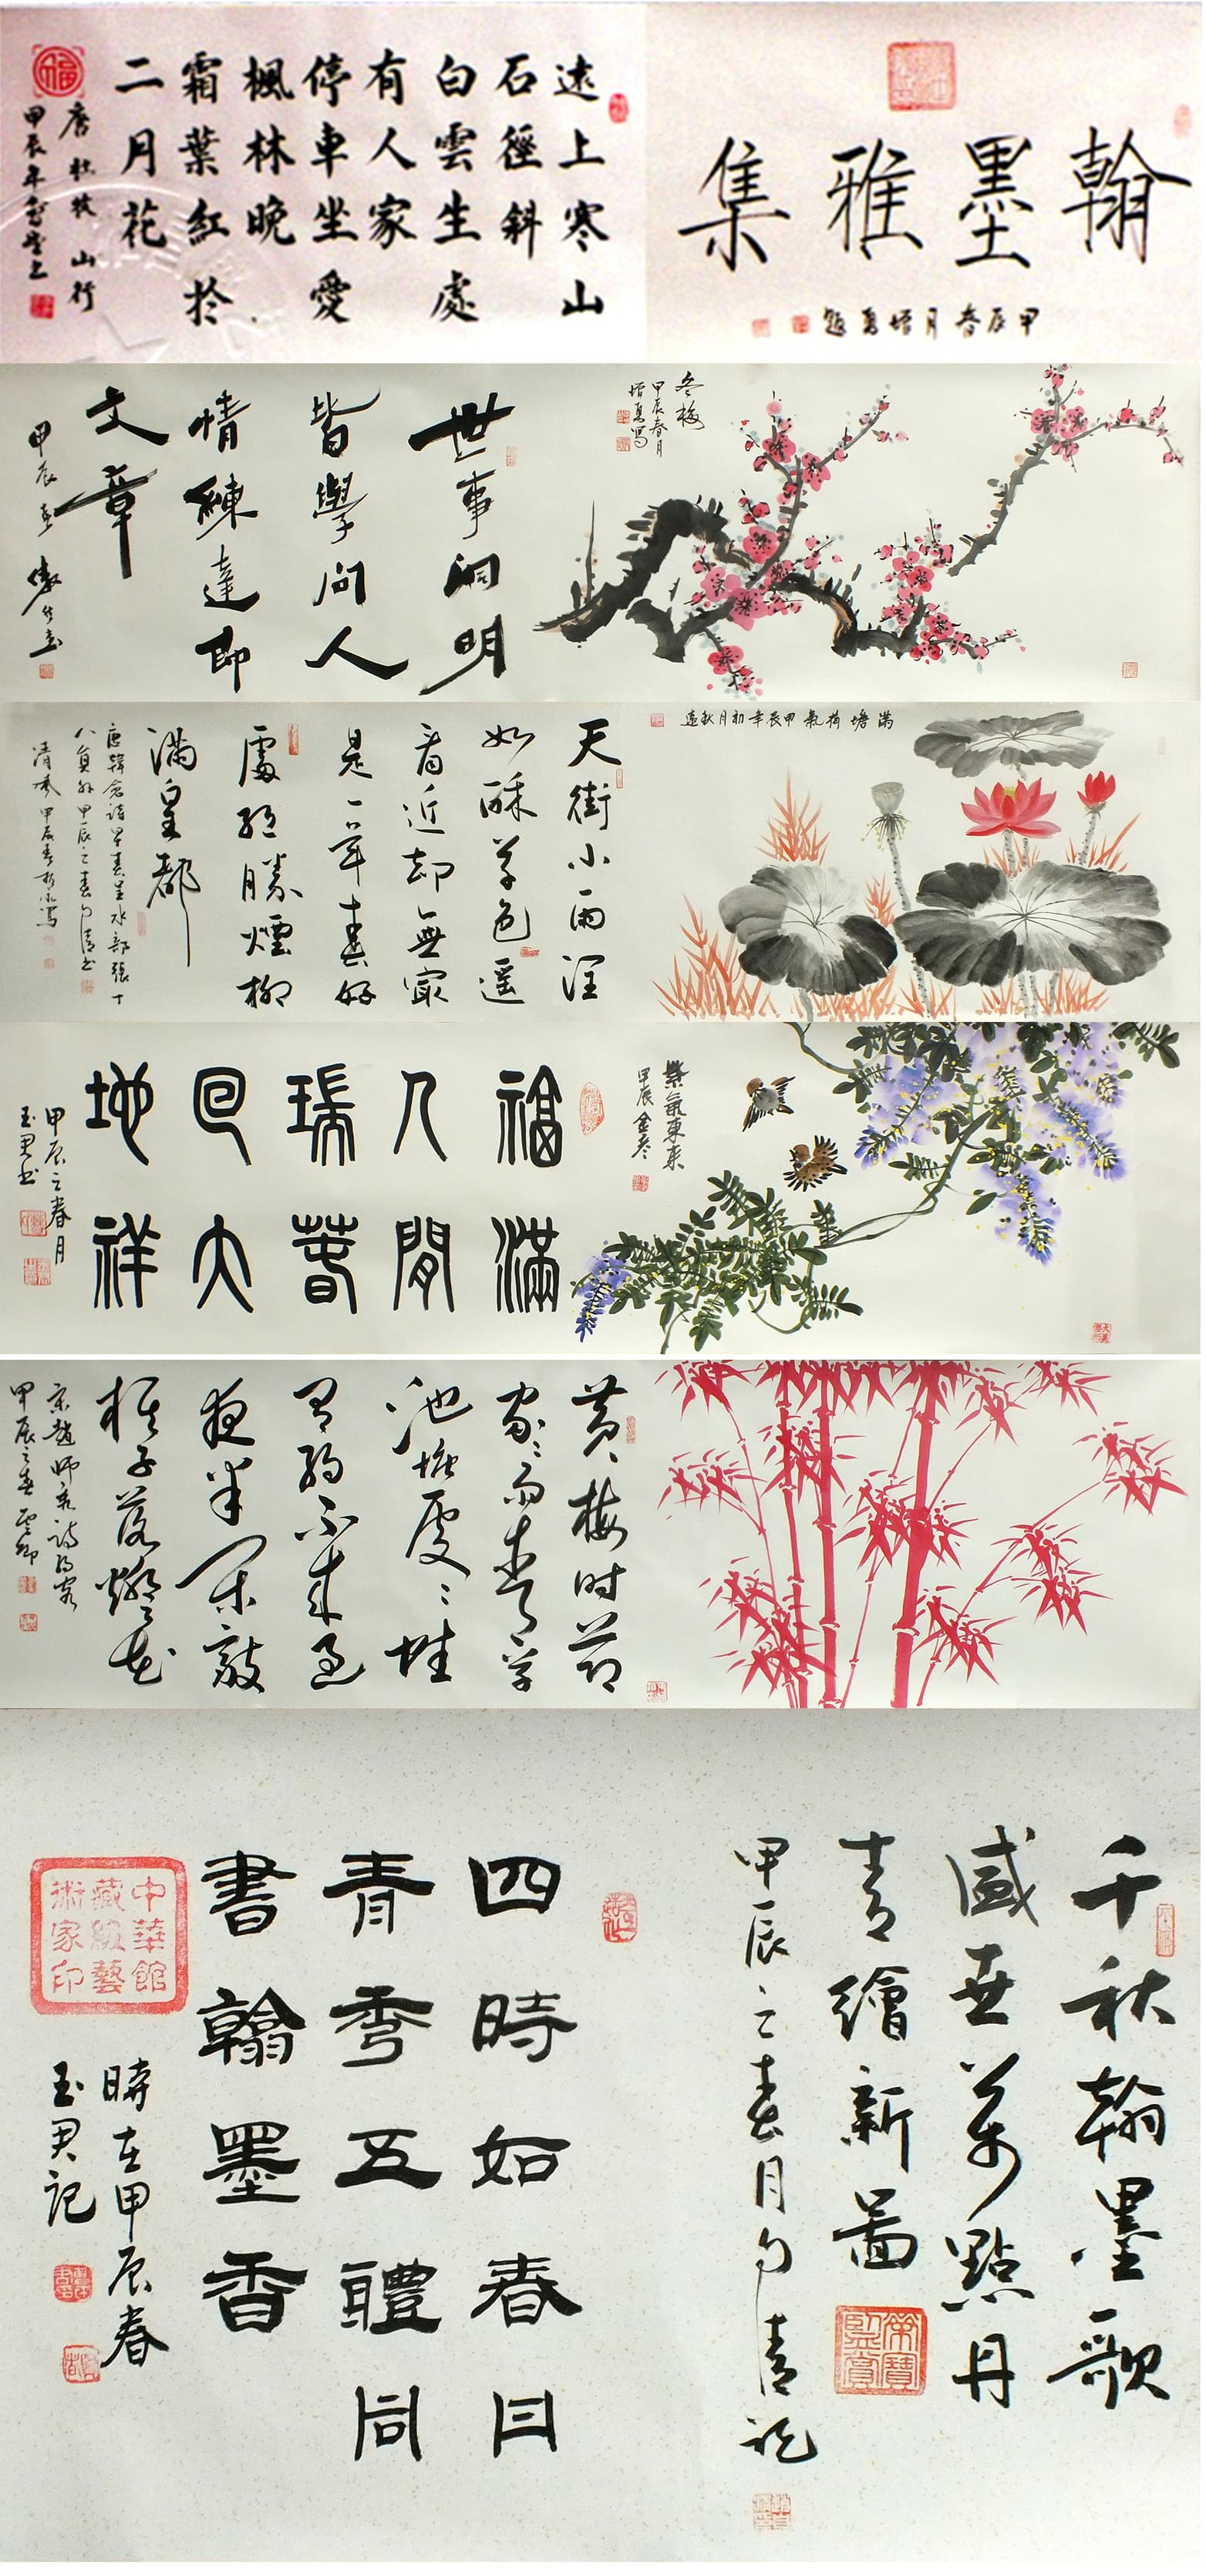 翰墨雅集
甲辰春月
遠上寒山
石徑斜
白雲生處
有人家
停車坐愛
楓林晚
霜葉紅於
二月花
唐杜牧山行
甲辰年
福
冬梅
甲辰春月
世事洞明
皆學問人
情練達即
文章
甲辰春
滿塘荷氣甲辰年初月秋遠
天街小雨潤
如酥草色遥
看近却無最
是一年春好
處絕勝煙柳
滿皇都
唐韓愈詩早春呈水部張十
八員外甲辰之春月清书
清風甲辰春
紫氣東來
甲辰
福滿
人間
瑞春
回大
地祥
甲辰之春月
玉君书
黄梅时節
家家雨青草
池塘處處蛙
有約不來過
夜半閑敲
棋子落燈花
宋趙師秀詩約客
甲辰之春雲卿
千秋翰墨歌
盛世萬點丹
青繪新圖
榮寶
監賞
甲辰之春月勺清記
四時如春日
青秀五體同
書翰墨香
中華館
藏級藝
術家印
時在甲辰春
玉君記